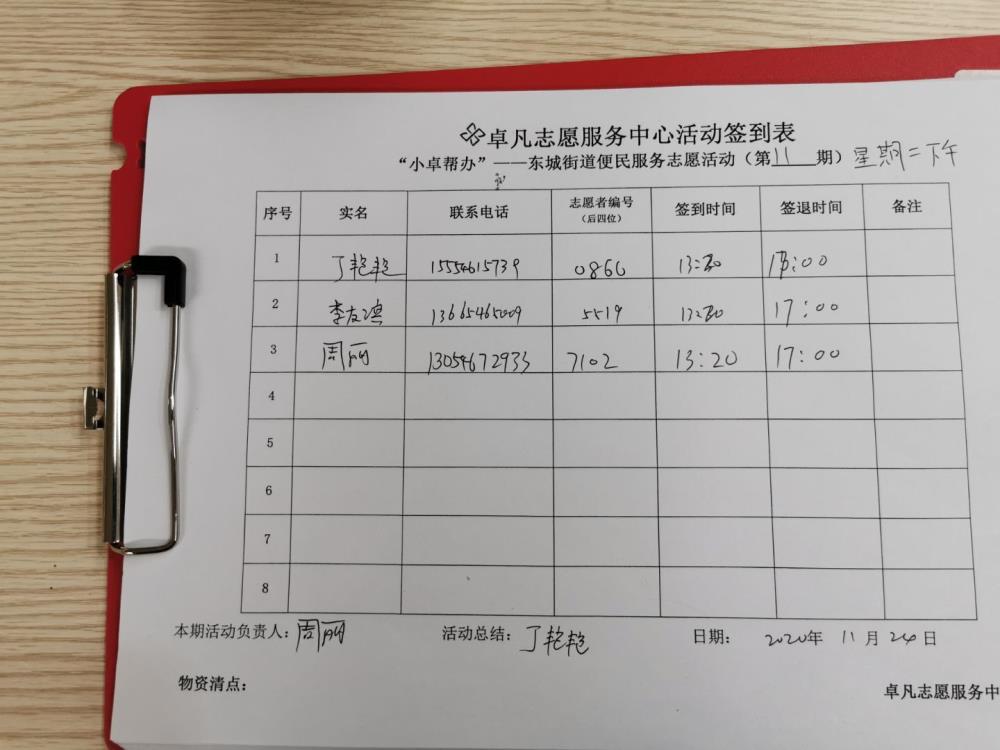 卓凡志愿服务中心活动签到表
“小卓帮办”——东城街道便民服务志愿活动（第11期）星期二下午
序号 实名 联系电话 志愿者编号（后四位） 签到时间 签退时间 备注
1 丁艳艳 15554615739 0860 13:20 17:00
2 李友 13665465009 5519 13:20 17:00
3 周丽 13054672933 7102 13:20 17:00
4
5
6
7
8
本期活动负责人：周丽 活动总结：丁艳艳 日期： 2020年 11月24日
物资清点：
卓凡志愿服务中